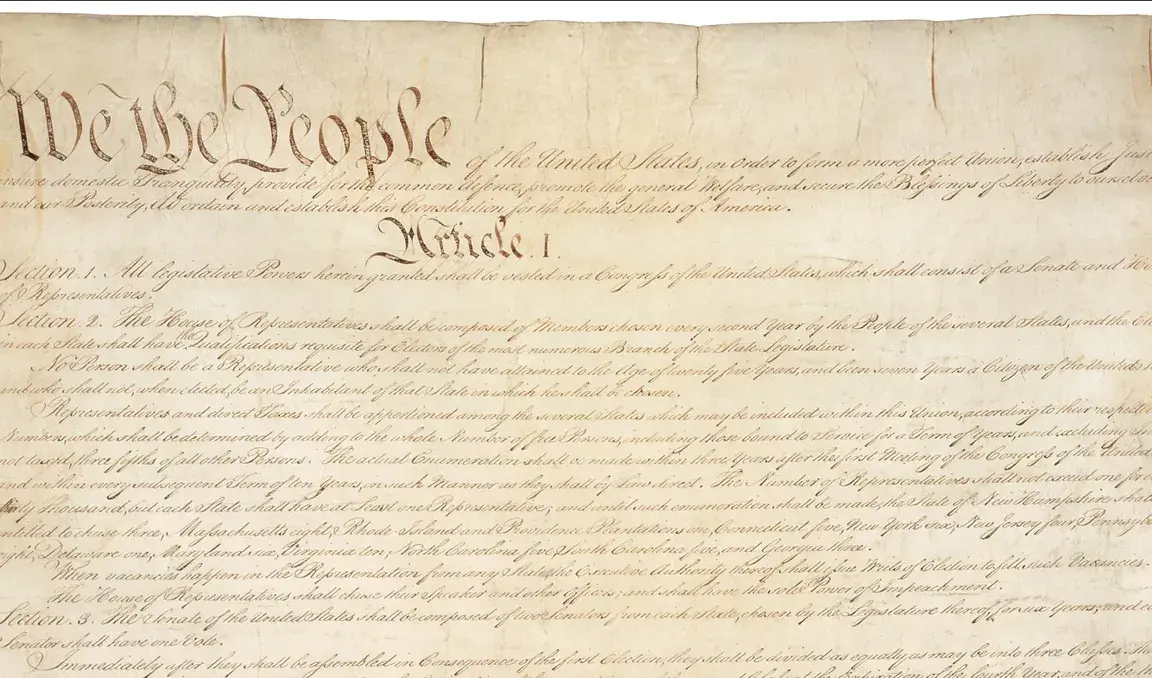 We the People of the United States, in Order to form a more perfect Union, establish Just
insure domestic Tranquility, provide for the common defence, promote the general Welfare, and secure the Blessings of Liberty to ourselve
and our Posterity, do ordain and establish this Constitution for the United States of America.
Article. I.
Section. 1. All legislative Powers herein granted shall be vested in a Congress of the United States, which shall consist of a Senate and Ho
of Representatives.
Section. 2. The House of Representatives shall be composed of Members chosen every second Year by the People of the several States, and the Elec
in each State shall have the Qualifications requisite for Electors of the most numerous Branch of the State Legislature.
No Person shall be a Representative who shall not have attained to the Age of twenty five Years, and been seven Years a Citizen of the United
and who shall not, when elected, be an Inhabitant of that State in which he shall be chosen.
Representatives and direct Taxes shall be apportioned among the several States which may be included within this Union, according to their respective
Numbers, which shall be determined by adding to the whole Number of free Persons, including those bound to Service for a Term of Years, and excluding
not taxed, three fifths of all other Persons. The actual Enumeration shall be made within three Years after the first Meeting of the Congress of the United
and within every subsequent Term of ten Years, in such Manner as they shall by Law direct. The Number of Representatives shall not exceed one for
thirty Thousand, but each State shall have at Least one Representative; and until such enumeration shall be made, the State of New Hampshire shall
entitled to chuse three, Massachusetts eight, Rhode Island and Providence Plantations one, Connecticut five, New York six, New Jersey four, Pennsylv
eight, Delaware one, Maryland six, Virginia ten, North Carolina five, South Carolina five, and Georgia three.
When vacancies happen in the Representation from any State, the Executive Authority thereof shall issue Writs of Election to fill such Vacancies.
The House of Representatives shall chuse their Speaker and other Officers; and shall have the sole Power of Impeachment.
Section. 3. The Senate of the United States shall be composed of two Senators from each State, chosen by the Legislature thereof, for six Years; and
Senator shall have one Vote.
Immediately after they shall be assembled in Consequence of the first Election, they shall be divided as equally as may be into three Classes. The
Expiration of the fourth Year, and of the